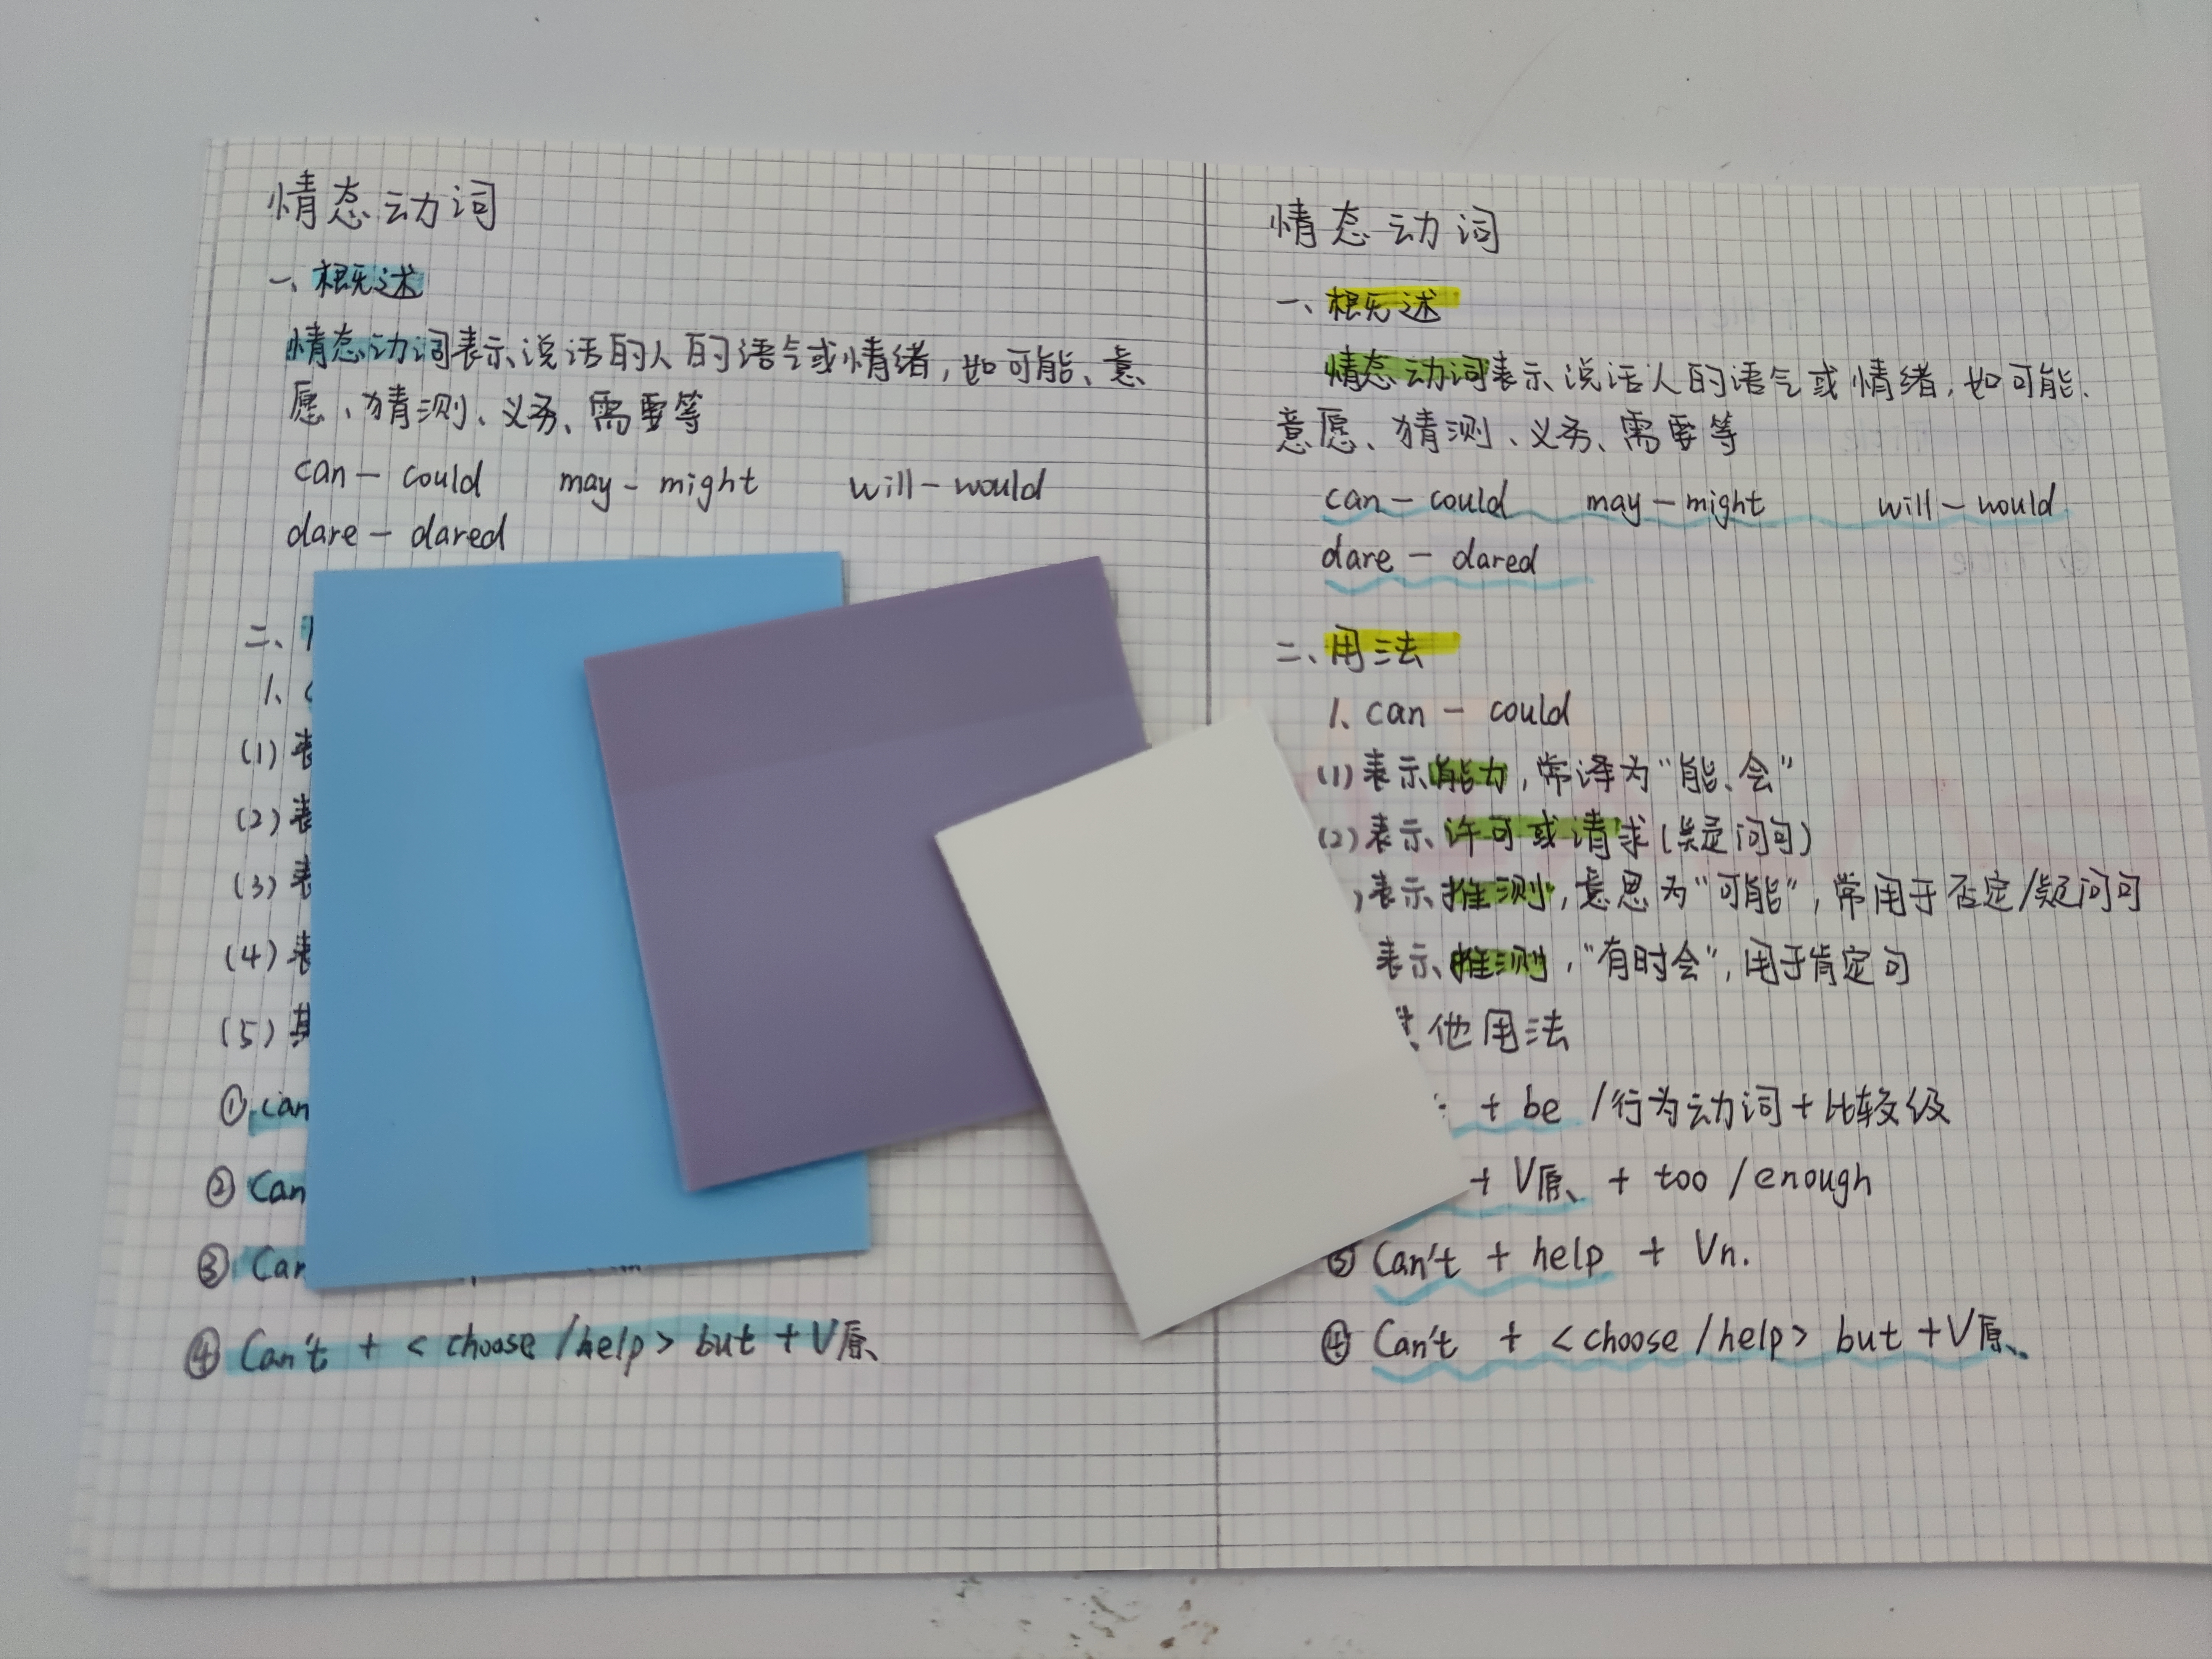 情态动词
一、概述
情态动词表示说话的人的语气或情绪，如可能、意
愿、猜测、义务、需要等
can — could may — might will — would
dare — dared
二、
1、
(1) 表
(2) 表
(3) 表
(4) 表
(5) 其
① can
② Can
③ Can
④ Can't + < choose / help > but + V原、
情态动词
一、概述
情态动词表示说话人的语气或情绪，如可能、
意愿、猜测、义务、需要等
can — could may — might will — would
dare — dared
二、用法
1、can — could
(1) 表示能力，常译为“能、会”
(2) 表示许可或请求(疑问句)
)表示推测，意思为“可能”，常用于否定/疑问句
表示推测，“有时会”，用于肯定句
其他用法
+ be /行为动词+比较级
+ V原、 + too / enough
③ Can't + help + Vn.
④ Can't + < choose / help > but + V原、